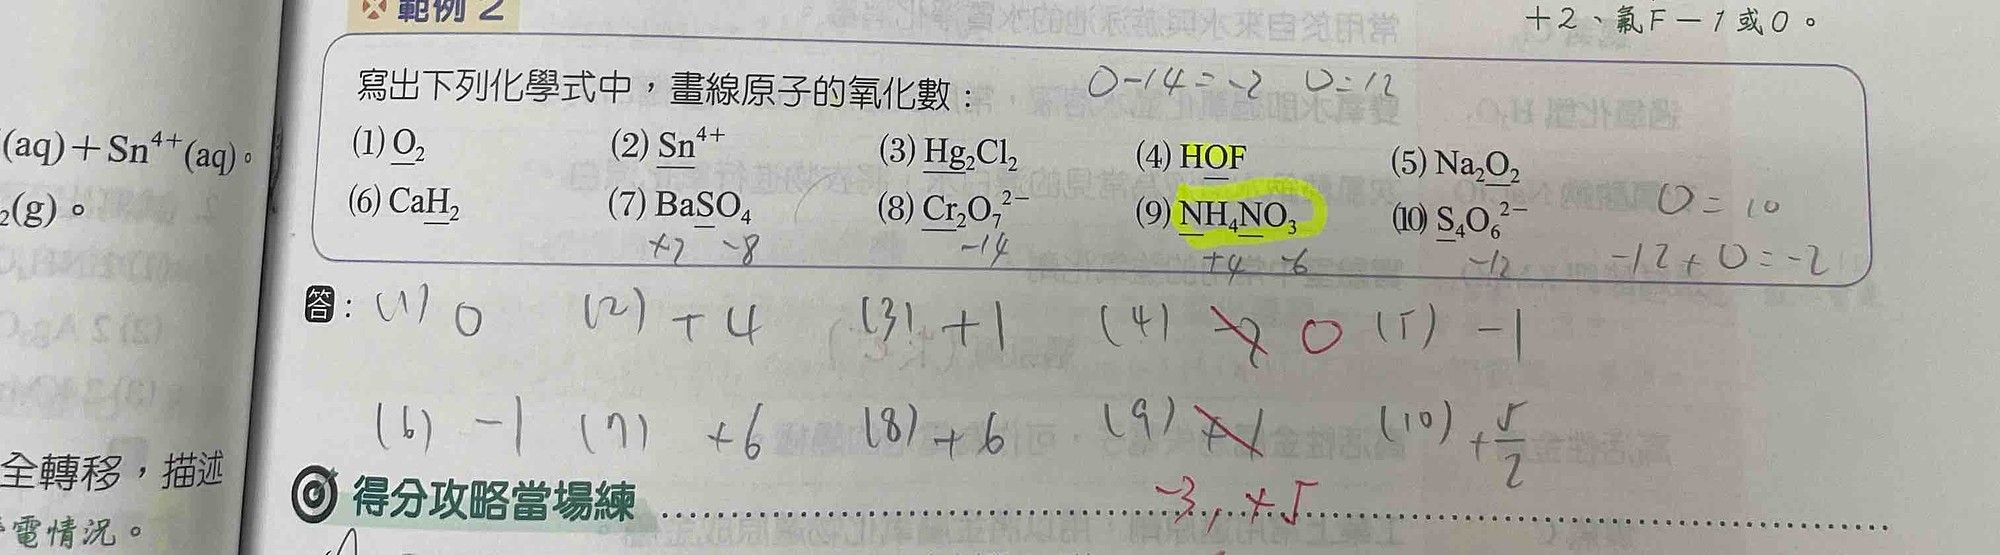 範例 2
+2、氟F-1或0。
寫出下列化學式中，畫線原子的氧化數：
0-14=-2 0=12
(aq)+Sn⁴⁺(aq)。
(1) O₂ (2) Sn⁴⁺ (3) Hg₂Cl₂ (4) HOF (5) Na₂O₂
₂(g)。
(6) CaH₂ (7) BaSO₄ (8) Cr₂O₇²⁻ (9) NH₄NO₃ (10) S₄O₆²⁻
0=10
+2 -8 -14 +4 -6 -12 -12+0=-2
答：(1) 0 (2) +4 (3) +1 (4) 0 (5) -1
(6) -1 (7) +6 (8) +6 (9) +1 (10) +5/2
全轉移，描述
得分攻略當場練
-3, +5
電情況。